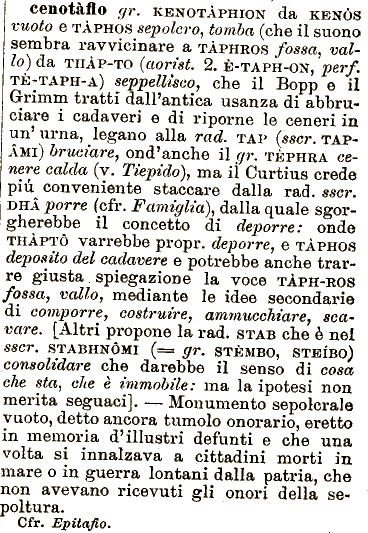 cenotàfio gr. KENOTÀPHION da KENÒS
vuoto e TÀPHOS sepolcro, tomba (che il suono
sembra ravvicinare a TÀPHROS fossa, val-
lo) da THÀP-TO (aorist. 2. È-TAPH-ON, perf.
TÈ-TAPH-A) seppellisco, che il Bopp e il
Grimm tratti dall'antica usanza di abbru-
ciare i cadaveri e di riporne le ceneri in
un' urna, legano alla rad. TAP (sscr. TAP-
ÂMI) bruciare, ond'anche il gr. TÈPHRA ce-
nere calda (v. Tiepido), ma il Curtius crede
più conveniente staccare dalla rad. sscr.
DHÂ porre (cfr. Famiglia), dalla quale sgor-
gherebbe il concetto di deporre: onde
THÀPTÔ varrebbe propr. deporre, e TÀPHOS
deposito del cadavere e potrebbe anche trar-
re giusta spiegazione la voce TÀPH-ROS
fossa, vallo, mediante le idee secondarie
di comporre, costruire, ammucchiare, sca-
vare. [Altri propone la rad. STAB che è nel
sscr. STABHNÔMI (= gr. STÈMBO, STEÍBO)
consolidare che darebbe il senso di cosa
che sta, che è immobile: ma la ipotesi non
merita seguaci]. — Monumento sepolcrale
vuoto, detto ancora tumolo onorario, eretto
in memoria d'illustri defunti e che una
volta si innalzava a cittadini morti in
mare o in guerra lontani dalla patria, che
non avevano ricevuti gli onori della se-
poltura.
Cfr. Epitafio.